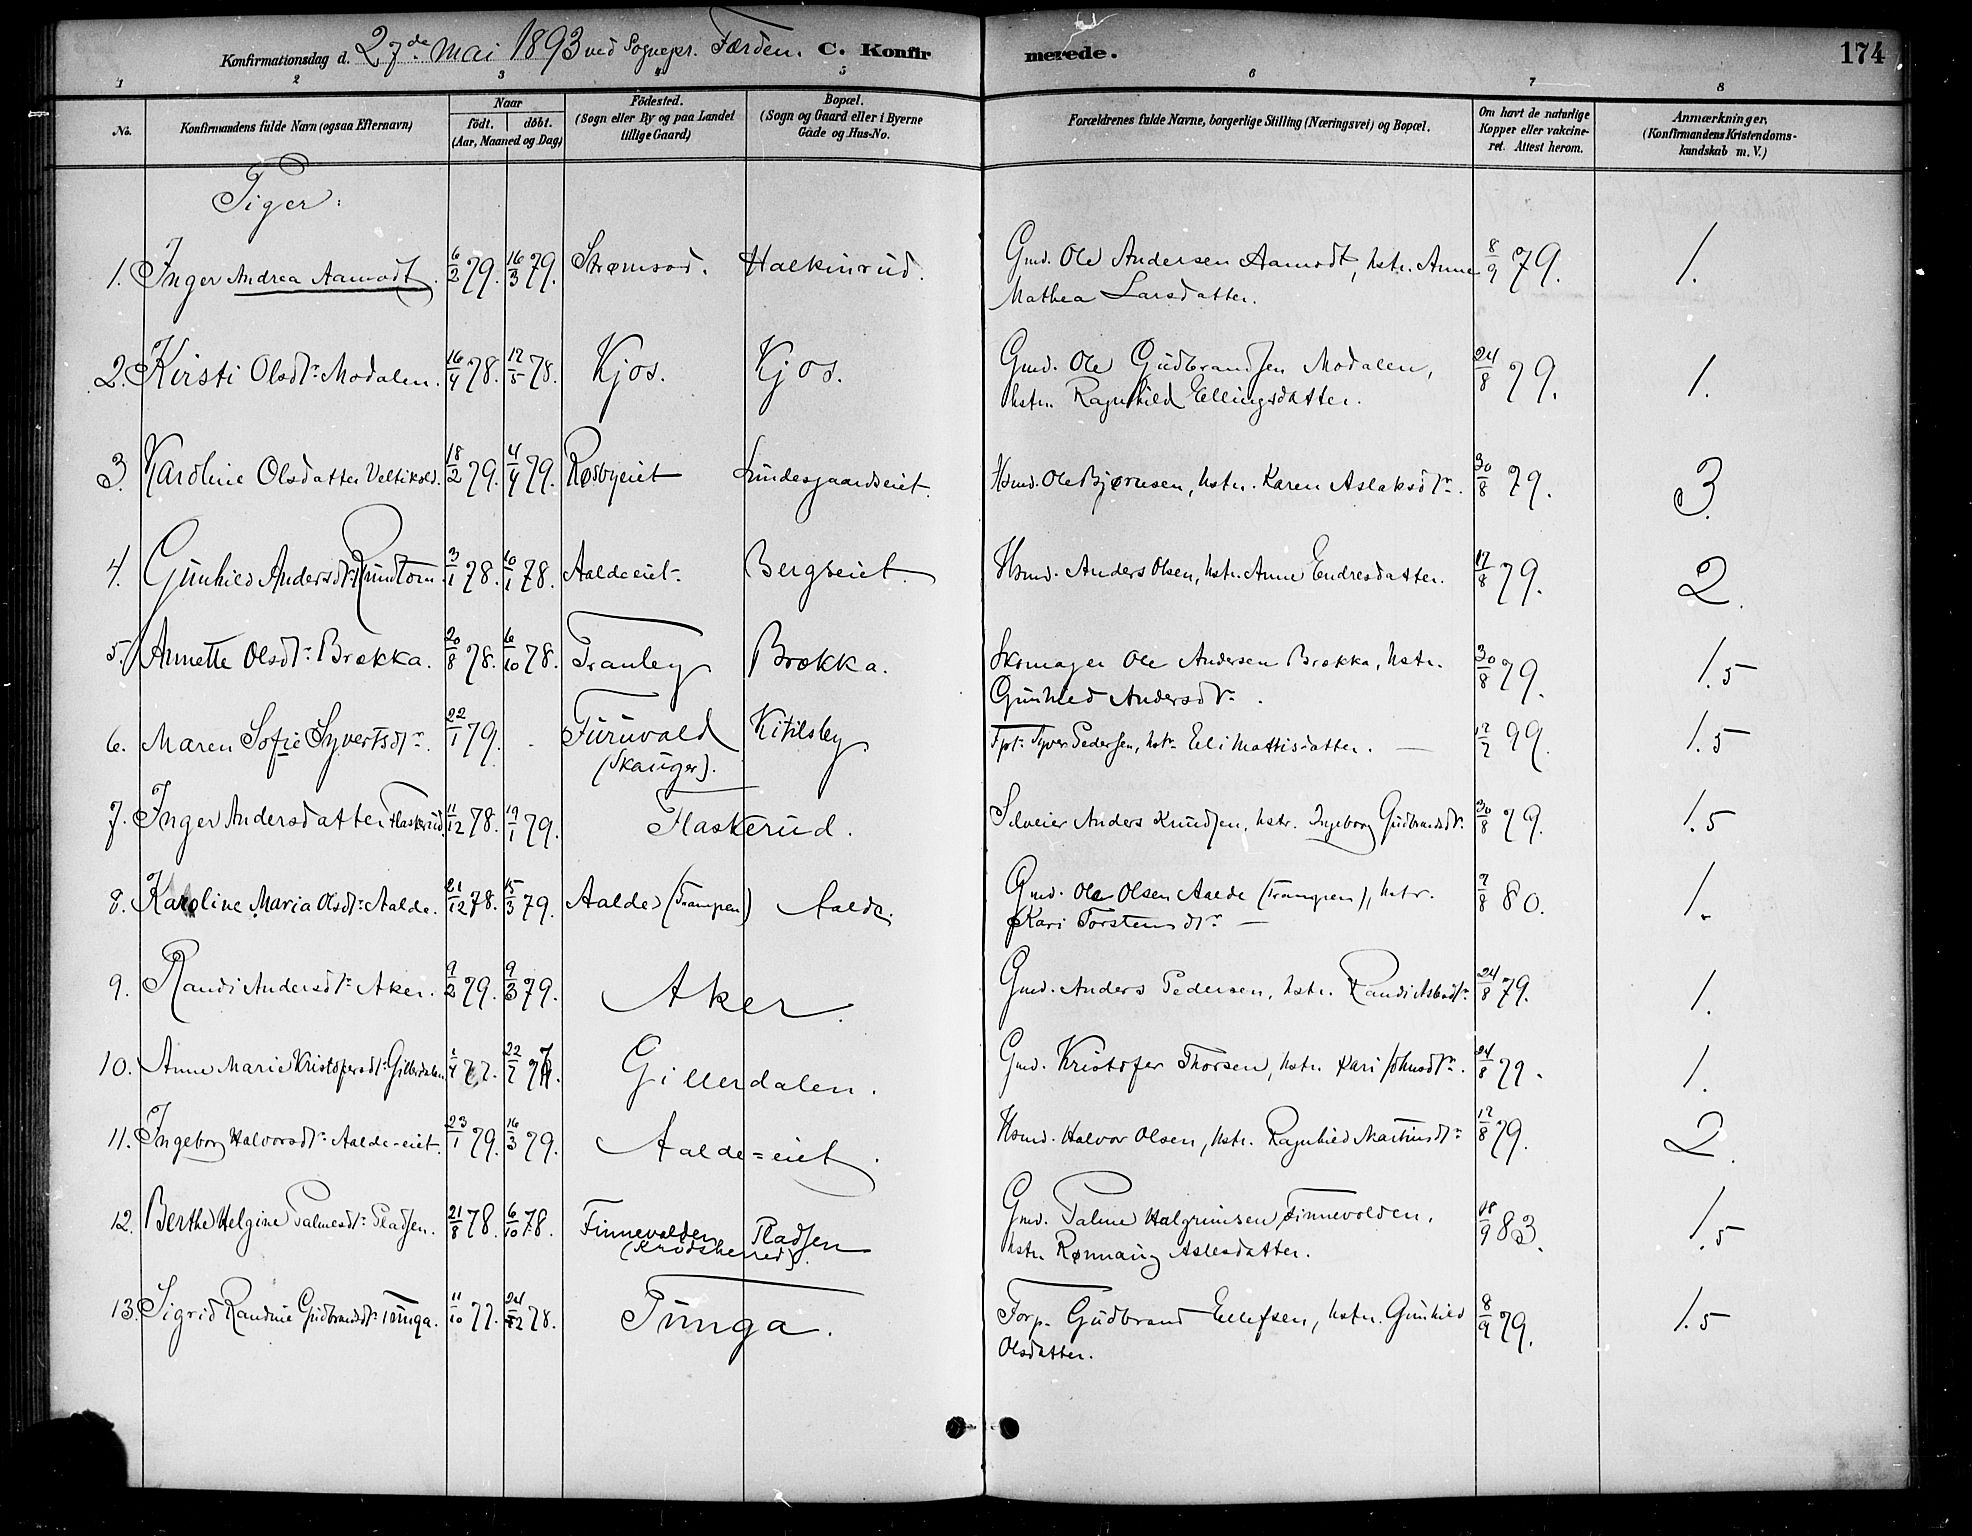 Konfirmationsdag d. 27de Mai 1893 ved Sognepr. Færden. C. Konfirmerede. 174
1 2 3 4 5 6 7 8
No. Konfirmandens fulde Navn (ogsaa Efternavn) Naar født. døbt. (Aar, Maaned og Dag) Födested. (Sogn eller By og paa Landet tillige Gaard) Bopæl. (Sogn og Gaard eller i Byerne Gade og Hus-No. Forældrenes fulde Navne, borgerlige Stilling (Næringsvei) og Bopæl. Om havt de naturlige Kopper eller vakcineret. Attest herom. Anmærkninger. (Konfirmandens Kristendomskundskab m. V.)
Piger:
1. Inger Andrea Aamodt. 6/2 79. 16/3 79. Strømsod. Halkinrud. Gmd. Ole Andersen Aamodt, hstr. Anne 8/9 79. 1.
Mathea Larsdatter.
2. Kirsti Olsdtr. Modalen. 16/4 78. 12/5 78. Kjos. Kjos. Gmd. Ole Gudbrandsen Modalen, 24/8 79. 1.
hstr. Ragnhild Ellingsdatter.
3. Karoline Olsdatter Veltikold. 18/2 79. 4/4 79. Røsbyeiet Lundesgaardseiet. Hsmd. Ole Bjørnsen, hstr. Karen Aslaksdtr. 30/8 79. 3.
4. Gunhild Andersdtr. Rundtom. 3/1 78. 10/1 78. Aaldeeiet. Bergseiet. Hsmd. Anders Olsen, hstr. Anne Endresdatter. 17/8 79. 2.
5. Annette Olsdtr. Brækka. 20/8 78. 6/10 78. Tranby Brækka. Skomager Ole Andersen Brækka, hstr. 30/8 79. 1.5
Gunhild Andersdtr.
6. Maren Sofie Syvertsdtr. 22/1 79. Furuvald Kitilsby Syver Pedersen, hstr. Eli Mattisdatter. 99. 1.5
(Skauger).
7. Inger Andersdatter Flaskerud. 11/12 78. 19/1 79. Flaskerud. Selveier Anders Knudsen, hstr. Ingeborg Gudbrandsdtr. 30/8 79. 1.5
8. Karoline Maria Olsdtr. Aalde. 21/12 78. 15/3 79. Aalde (Trampen) Aalde. Gmd. Ole Olsen Aalde (Trampen), hstr. 7/8 80. 1.
Kari Torstensdtr.
9. Randi Andersdtr. Aker. 9/2 79. 9/3 79. Aker. Gmd. Anders Pedersen, hstr. Randi 24/8 79. 1.
10. Anne Marie Kristofersdtr. Gillerdalen 77. 22/7 77. Gillerdalen. Gmd. Kristofer Thorsen, hstr. Kari Johnsdtr. 24/8 79. 1.
11. Ingeborg Halvorsdtr. Aalde-eiet. 23/1 79. 16/3 79. Aalde-eiet. Hsmd. Halvor Olsen, hstr. Ragnhild Martinsdtr. 17/8 79. 2.
12. Berthe Helgine Palmesdtr. Pladsen. 21/8 78. 6/10 78. Finnevolden Pladsen Gmd. Palme Halgrimsen Finnevolden, 18/9 83. 1.5
(Krødsherred). hstr. Rønnaug Aslesdatter.
13. Sigrid Randine Gudbrandsdtr. Tunga. 11/10 77. 78. Tunga. Forp. Gudbrand Ellefsen, hstr. Gunhild 8/9 79. 1.5
Olsdatter.